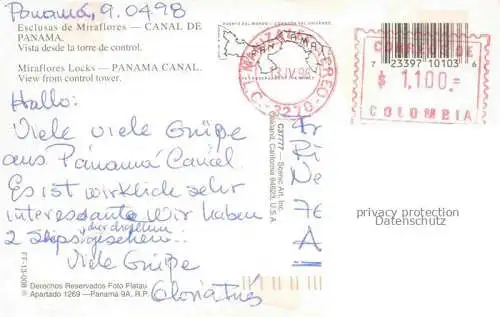 Panamá, 9.0498
Esclusas de Miraflores — CANAL DE
PANAMA.
Vista desde la torre de control.
Miraflores Locks — PANAMA CANAL.
View from control tower.
Hallo:
Viele viele Grüße
aus Panamá Canal.
Es ist wirklich sehr
interessante wir haben
2 Ships gesehen
Viele Grüße
FF-13-008
Derechos Reservados Foto Flatau
Apartado 1269 — Panama 9A, R.P.
PUENTE DEL MUNDO - CORAZON DEL UNIVERSO
PANAMA
C37777 — Scenic Art, Inc.
Oakland, California 94623, U.S.A
IV 98
2270
7 23397 10103 6
CORREOS DE
$ 1,100.=
COLOMBIA
Ri
Ne
76
A
privacy protection
Datenschutz